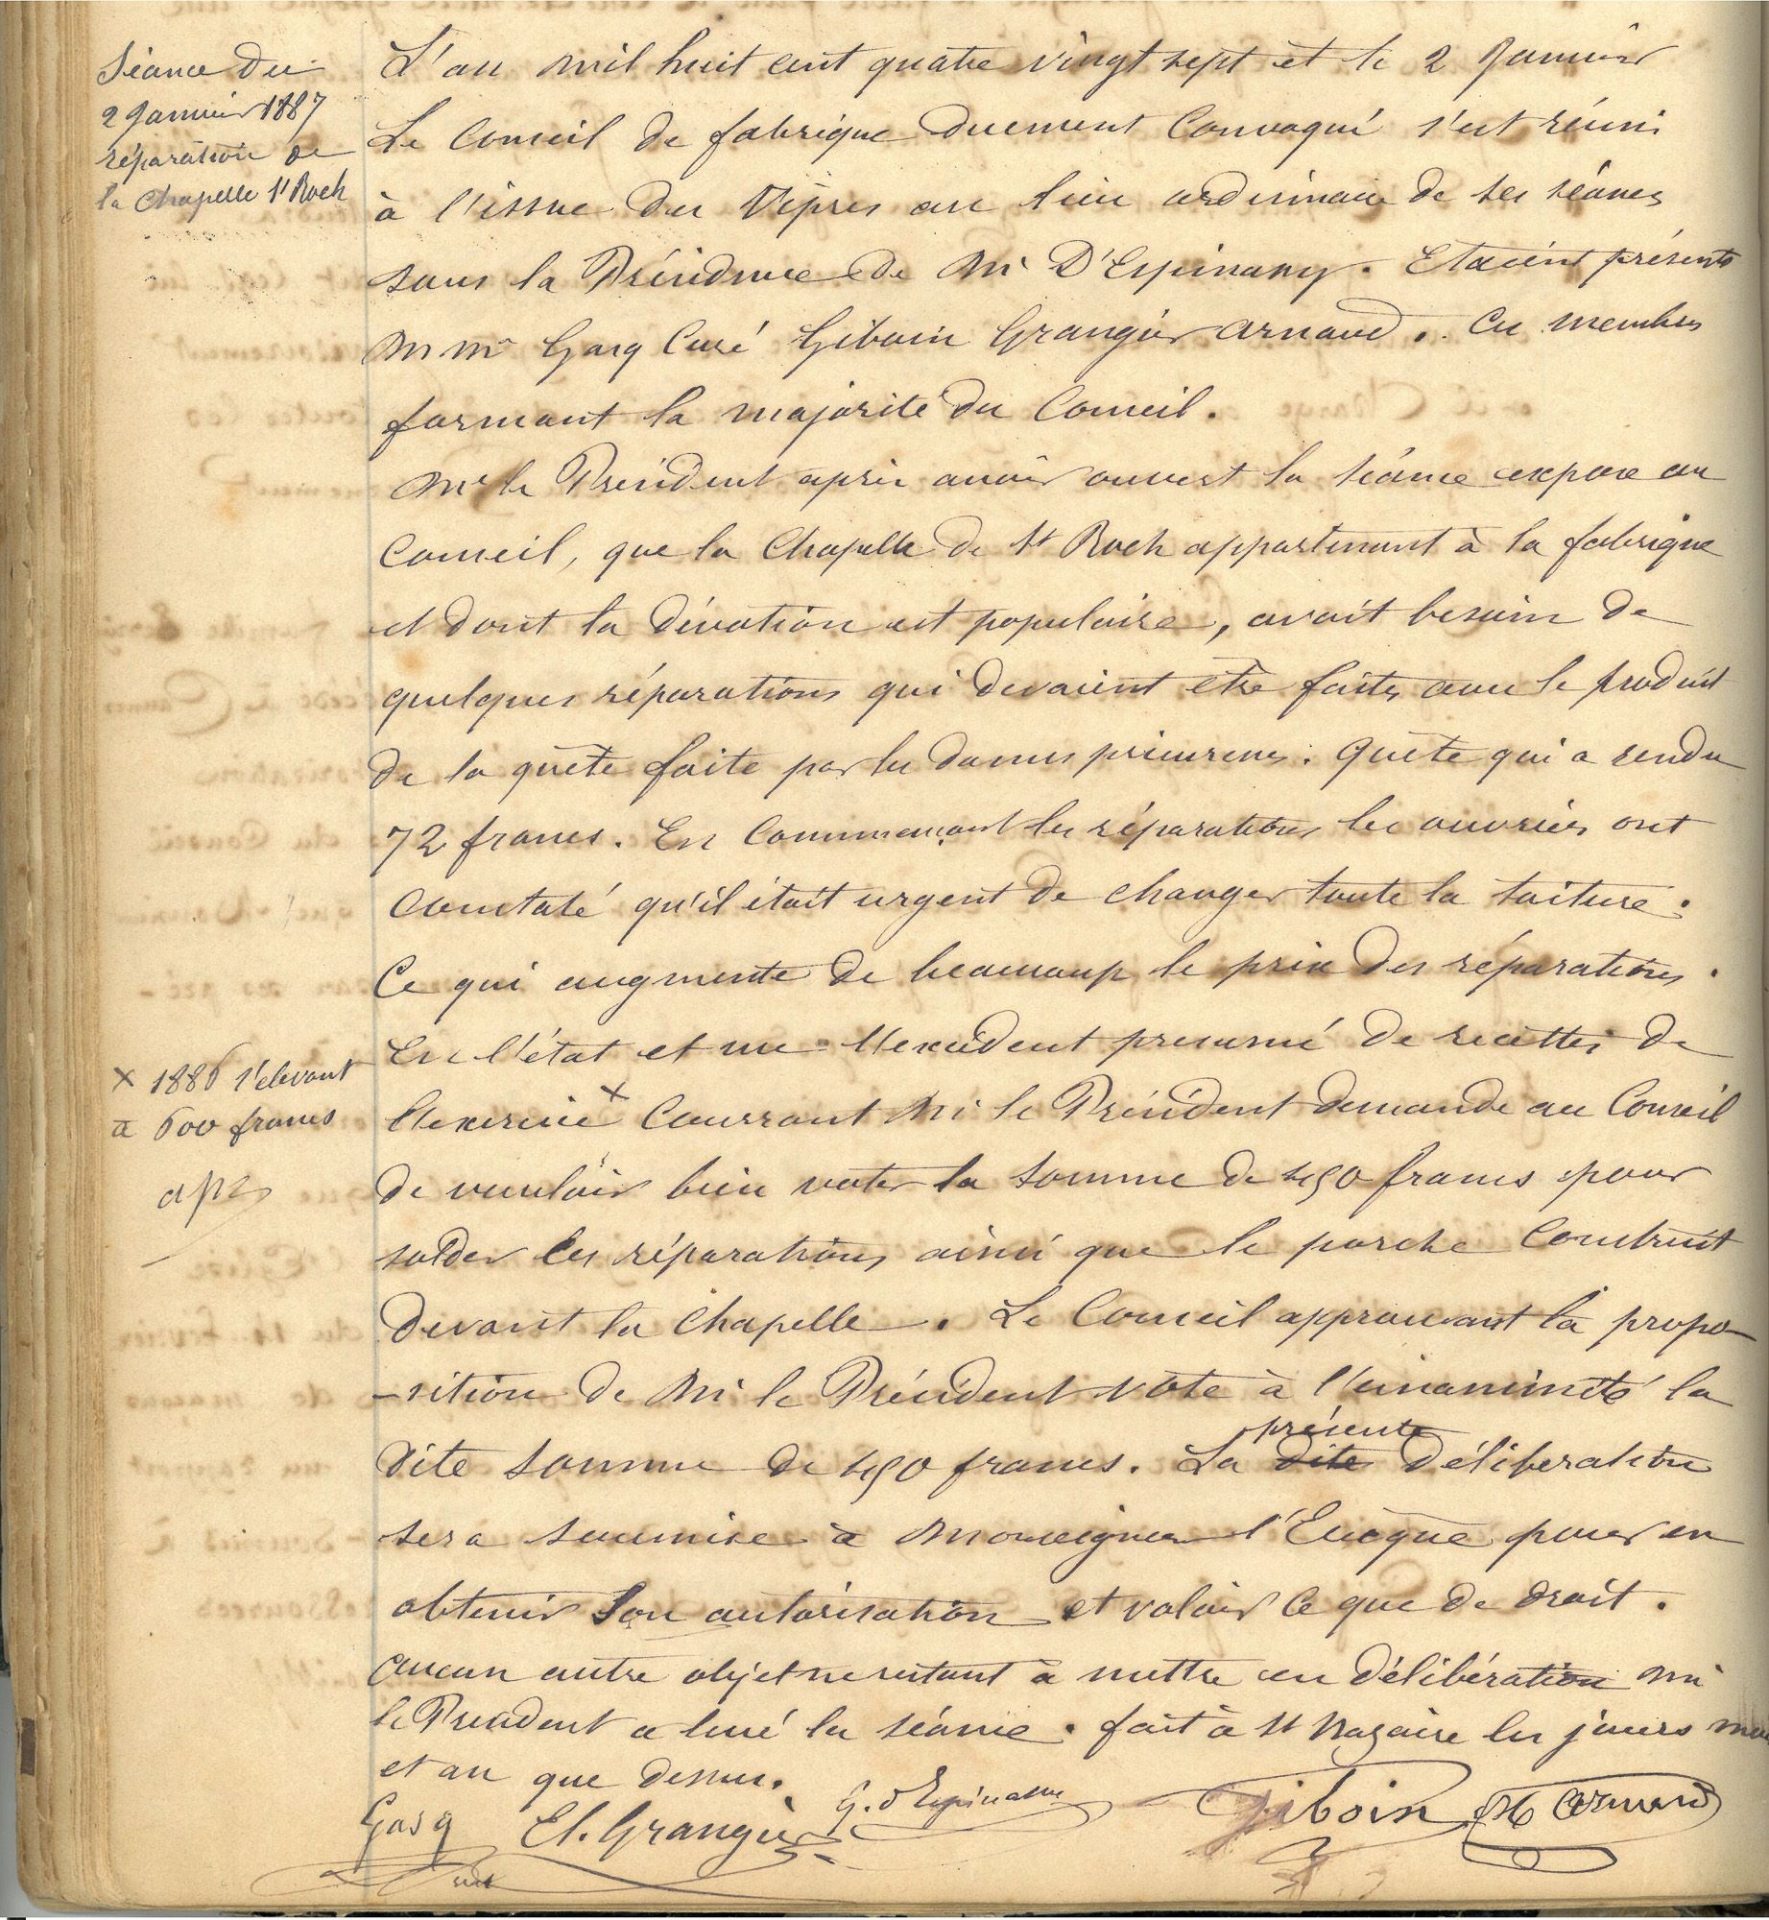 Séance du
2 Janvier 1887
réparation de
la Chapelle St Roch
L'an mil huit cent quatre vingt sept et le 2 Janvier
Le Conseil de fabrique duement Convoqué s'est réuni
à l'issue des Vêpres au lieu ordinaire de ses séances
sous la Présidence de Mr D'Espinassy. Etaient présents
M Mrs Gasq Curé Giboin Grangier Arnaud. Ces membres
formant la majorité du Conseil.
Mr le Président après avoir ouvert la séance expose au
Conseil, que la Chapelle de St Roch appartenant à la fabrique
et dont la dévotion est populaire, avait besoin de
quelques réparations qui devaient être faites avec le produit
de la quête faite par les dames prieures. Quête qui a rendu
72 francs. En Commençant les réparations les ouvriers ont
Constaté qu'il était urgent de changer toute la toiture.
Ce qui augmente de beaucoup le prix des réparations.
En l'état et vu l'excédent présumé de recettes de
l'exercice x Courrant Mr le Président demande au Conseil
x 1886 s'élevant
à 600 francs
de vouloir bien voter la somme de 450 francs pour
solder les réparations ainsi que le porche Construit
devant la Chapelle. Le Conseil approuvant la propo-
-sition de Mr le Président vote à l'unanimité la
dite somme de 450 francs. La dite présente délibération
sera soumise à Monseigneur l'Evêque pour en
obtenir son autorisation et valoir ce que de droit.
Aucun autre objet ne restant à mettre en délibération Mr
le Président a levé la séance. fait à St Nazaire les jours mois
et an que dessus.
Gasq El. Grangier G. d'Espinassy Giboin Arnaud